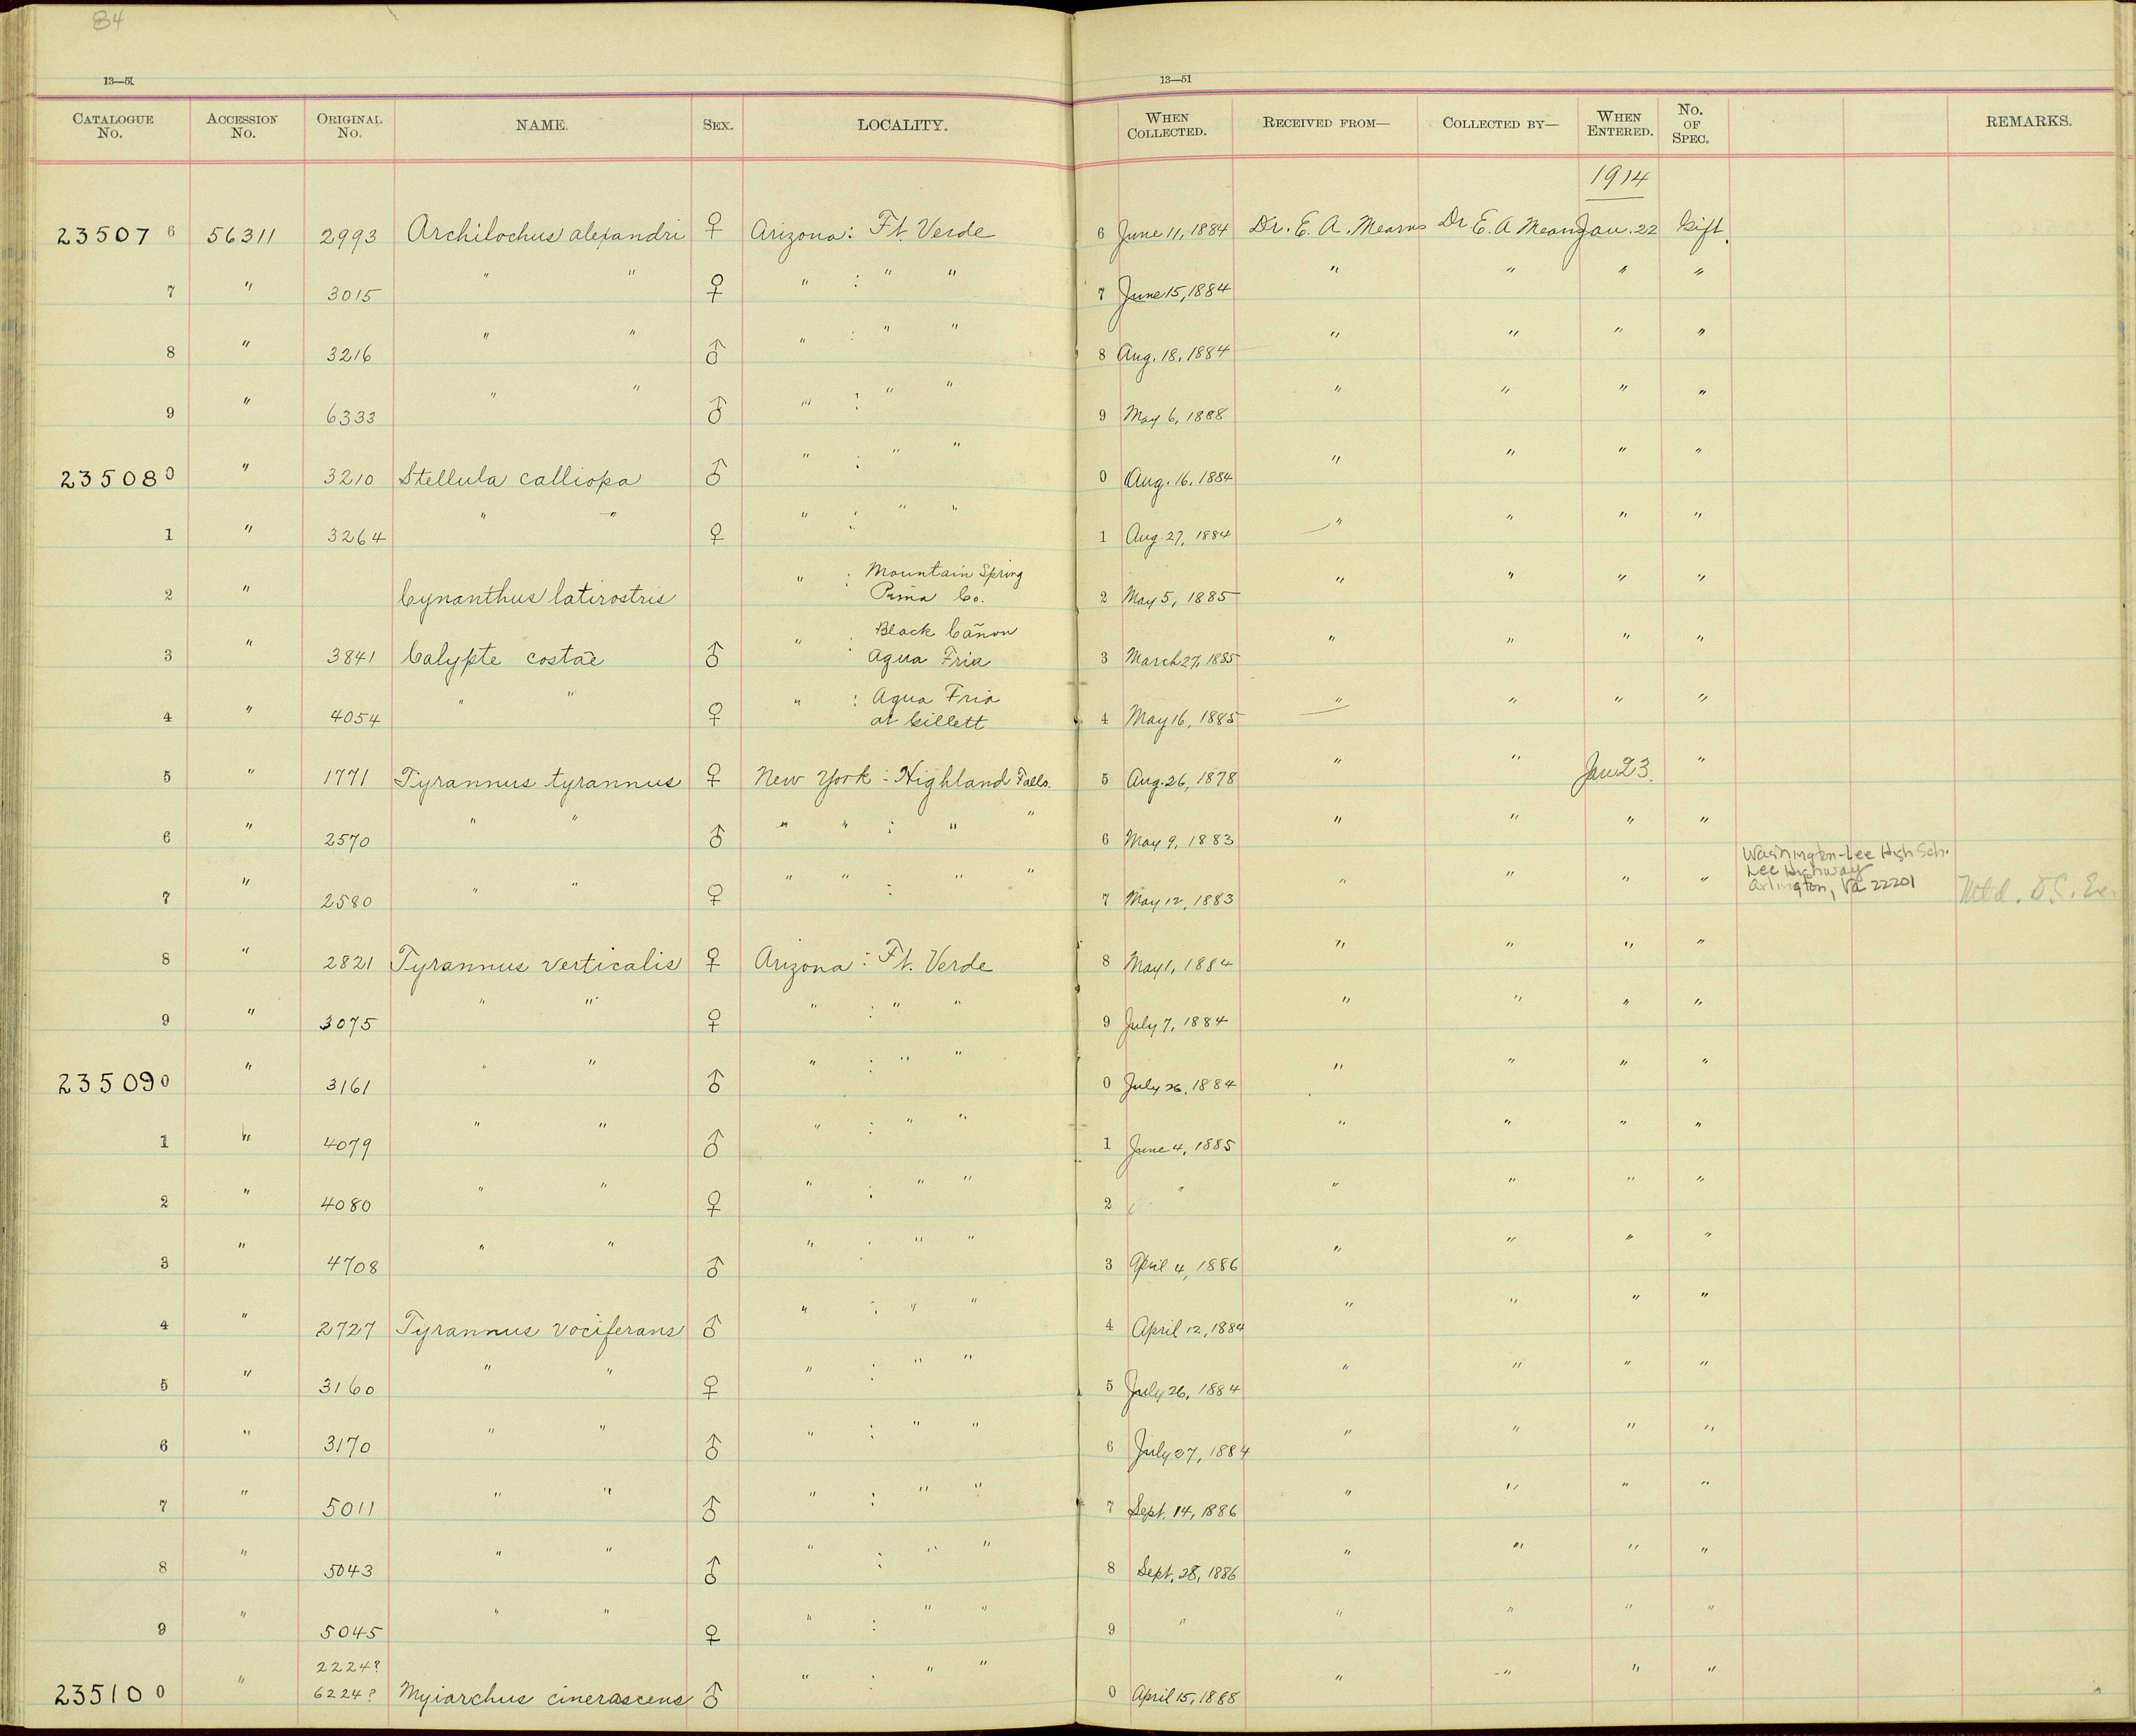 84
13—51
13—51
CATALOGUE No. ACCESSION No. ORIGINAL No. NAME. SEX. LOCALITY. WHEN COLLECTED. RECEIVED FROM— COLLECTED BY— WHEN ENTERED. No. OF SPEC. REMARKS.
1914
235076 56311 2993 Archilochus alexandri ♀ Arizona: Ft. Verde 6 June 11, 1884 Dr. E. A. Mearns Dr E. A Mearns Jan. 22 Gift.
7 " 3015 " " ♀ " : " " 7 June 15, 1884 " " " "
8 " 3216 " " ♂ " : " " 8 Aug. 18, 1884 " " " "
9 " 6333 " " ♂ " : " " 9 May 6, 1888 " " " "
235080 " 3210 Stellula calliopa ♂ " : " " 0 Aug. 16, 1884 " " " "
1 " 3264 " " ♀ " : " " 1 Aug. 27, 1884 " " " "
2 " Cynanthus latirostris " : Mountain Spring
Pima Co. 2 May 5, 1885 " " " "
3 " 3841 Calypte costae ♂ " : Black Cañon
Agua Fria 3 March 27, 1885 " " " "
4 " 4054 " " ♀ " : Agua Fria
at Gillett 4 May 16, 1885 " " " "
5 " 1771 Tyrannus tyrannus ♀ New York : Highland Falls. 5 Aug. 26, 1878 " " Jan 23. "
6 " 2570 " " ♂ " " : " " 6 May 9, 1883 " " " "
7 " 2580 " " ♀ " " : " " 7 May 12, 1883 " " " " Washington-Lee High Sch.
Lee Highway
Arlington, Va 22201
8 " 2821 Tyrannus verticalis ♀ Arizona : Ft. Verde 8 May 1, 1884 " " " "
9 " 3075 " " ♀ " : " " 9 July 7, 1884 " " " "
235090 " 3161 " " ♂ " : " " 0 July 26, 1884 " " " "
1 " 4079 " " ♂ " : " " 1 June 4, 1885 " " " "
2 " 4080 " " ♀ " : " " 2 " " " " "
3 " 4708 " " ♂ " : " " 3 April 4, 1886 " " " "
4 " 2727 Tyrannus vociferans ♂ " : " " 4 April 12, 1884 " " " "
5 " 3160 " " ♀ " : " " 5 July 26, 1884 " " " "
6 " 3170 " " ♂ " : " " 6 July 27, 1884 " " " "
7 " 5011 " " ♂ " : " " 7 Sept. 14, 1886 " " " "
8 " 5043 " " ♂ " : " " 8 Sept. 28, 1886 " " " "
9 " 5045 " " ♀ " : " " 9 " " " " "
2224?
235100 " 6224? Myiarchus cinerascens ♂ " : " " 0 April 15, 1888 " " " "